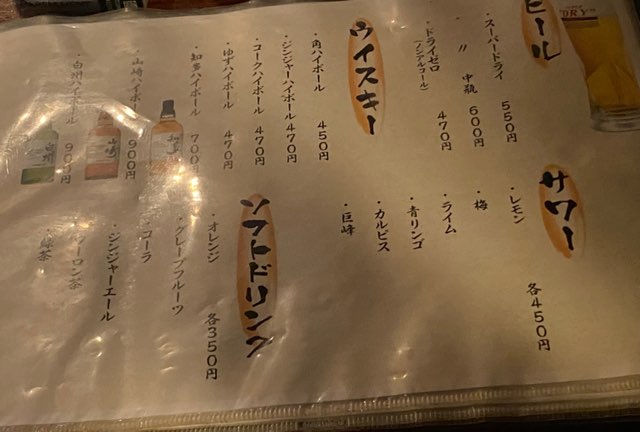 ビール
・スーパードライ 550円
・〃 中瓶 600円
・ドライゼロ 470円
(ノンアルコール)
ウイスキー
・角ハイボール 450円
・ジンジャーハイボール 470円
・コークハイボール 470円
・ゆずハイボール 470円
・知多ハイボール 700円
・山崎ハイボール 900円
・白州ハイボール 900円
知多
山崎
白州
サワー
各450円
・レモン
・梅
・ライム
・青リンゴ
・カルピス
・巨峰
ソフトドリンク
各350円
・オレンジ
・グレープフルーツ
・コーラ
・ジンジャーエール
・ウーロン茶
・緑茶